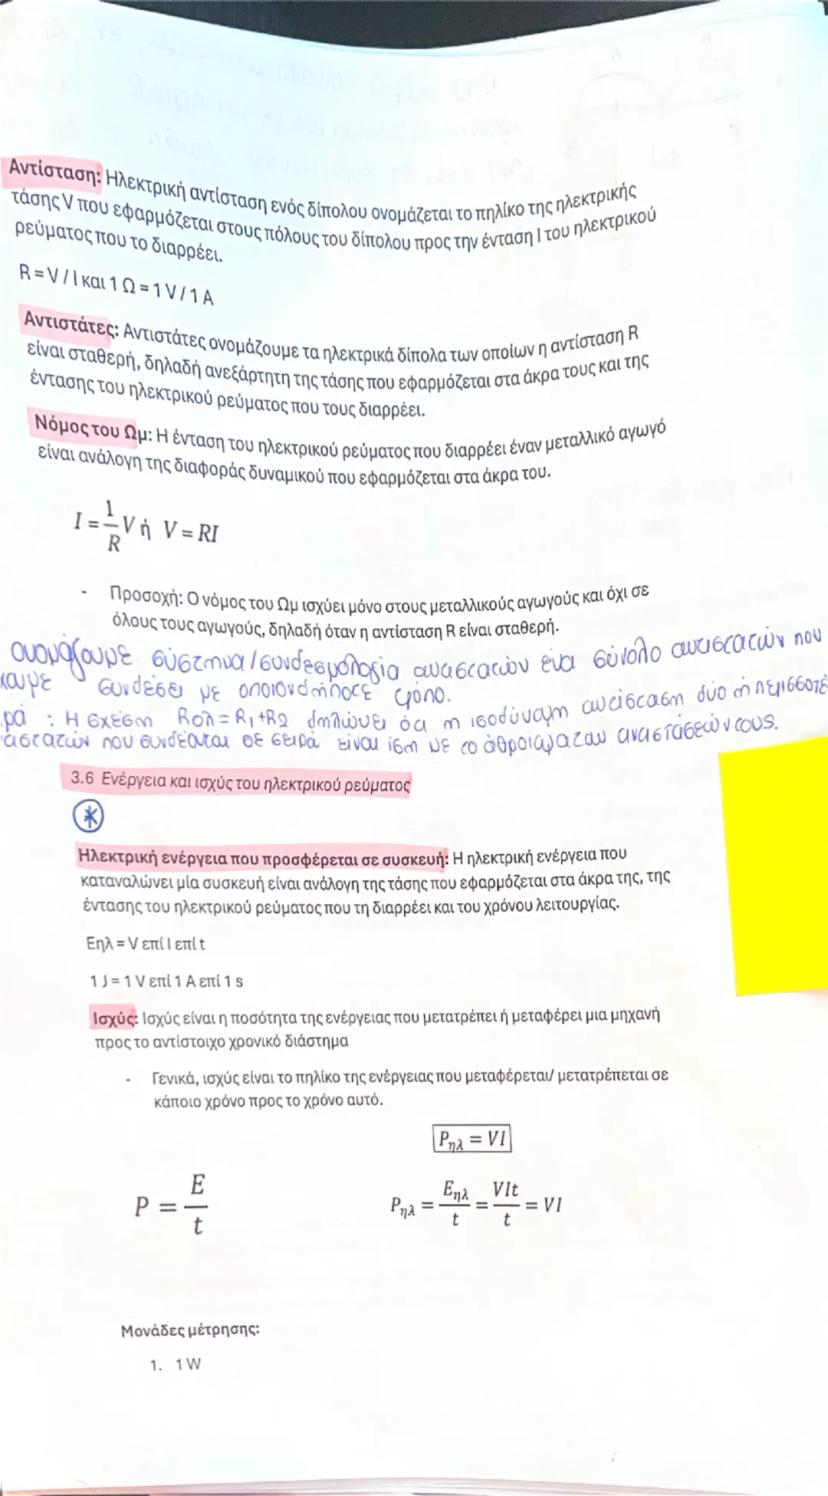 Αντίσταση: Ηλεκτρική αντίσταση ενός δίπολου ονομάζεται το πηλίκο της ηλεκτρικής
τάσης V που εφαρμόζεται στους πόλους του δίπολου προς την ένταση I του ηλεκτρικού
ρεύματος που το διαρρέει.
R = V / I και 1 Ω = 1 V / 1 A
Αντιστάτες: Αντιστάτες ονομάζουμε τα ηλεκτρικά δίπολα των οποίων η αντίσταση R
είναι σταθερή, δηλαδή ανεξάρτητη της τάσης που εφαρμόζεται στα άκρα τους και της
έντασης του ηλεκτρικού ρεύματος που τους διαρρέει.
Νόμος του Ωμ: Η ένταση του ηλεκτρικού ρεύματος που διαρρέει έναν μεταλλικό αγωγό
είναι ανάλογη της διαφοράς δυναμικού που εφαρμόζεται στα άκρα του.
I = 1/R V ή V = RI
- Προσοχή: Ο νόμος του Ωμ ισχύει μόνο στους μεταλλικούς αγωγούς και όχι σε
όλους τους αγωγούς, δηλαδή όταν η αντίσταση R είναι σταθερή.
ονομάζουμε σύστημα/συνδεσμολογία αντιστατών ένα σύνολο αντιστατών που
χουμε συνδέσει με οποιονδήποτε τρόπο.
ρά : Η σχέση Rολ = R1+R2 δηλώνει ότι η ισοδύναμη αντίσταση δύο ή περισσοτέ
τιστατών που συνδέονται σε σειρά είναι ίση με το άθροισμα των αντιστάσεών τους.
3.6 Ενέργεια και ισχύς του ηλεκτρικού ρεύματος
*
Ηλεκτρική ενέργεια που προσφέρεται σε συσκευή: Η ηλεκτρική ενέργεια που
καταναλώνει μία συσκευή είναι ανάλογη της τάσης που εφαρμόζεται στα άκρα της, της
έντασης του ηλεκτρικού ρεύματος που τη διαρρέει και του χρόνου λειτουργίας.
Εηλ = V επί I επί t
1 J = 1 V επί 1 A επί 1 s
Ισχύς: Ισχύς είναι η ποσότητα της ενέργειας που μετατρέπει ή μεταφέρει μια μηχανή
προς το αντίστοιχο χρονικό διάστημα
- Γενικά, ισχύς είναι το πηλίκο της ενέργειας που μεταφέρεται/ μετατρέπεται σε
κάποιο χρόνο προς το χρόνο αυτό.
Pηλ = VI
P = E/t
Pηλ = Eηλ/t = VIt/t = VI
Μονάδες μέτρησης:
1. 1 W